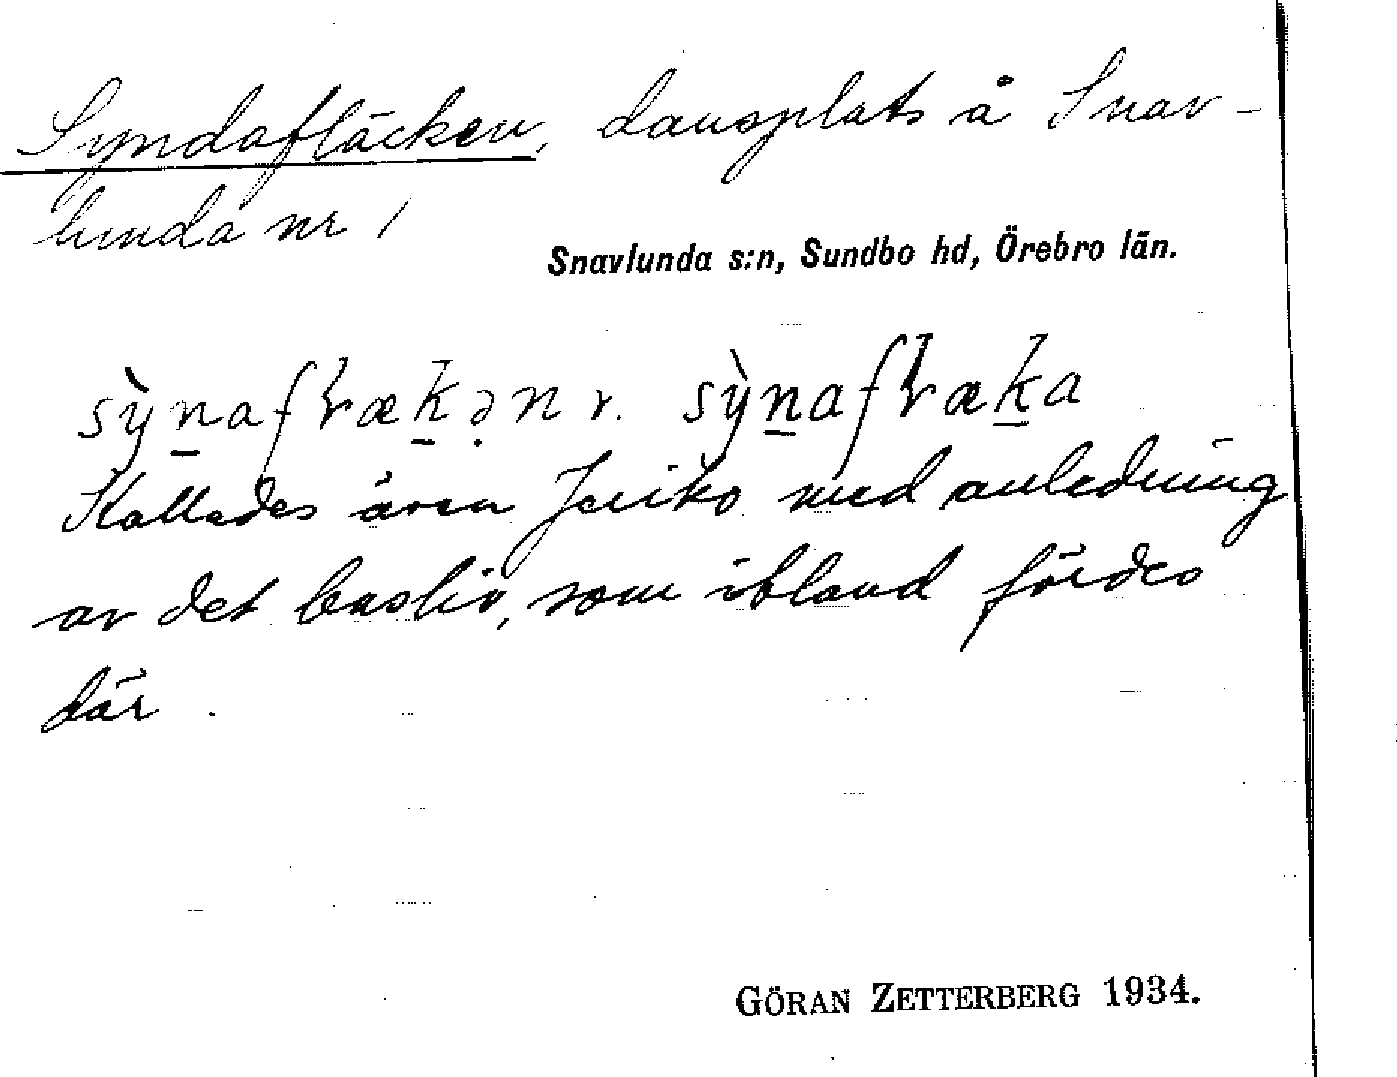 Syndafläcken, dansplats å Snav-
lunda nr 1
Snavlunda s:n, Sundbo hd, Örebro län.
sỳn̲afꞭæk̲ə̣n v. sỳn̲afꞭæk̲a
Kallades även Jeriko med anledning
av det busliv, som ibland fördes
där.
GÖRAN ZETTERBERG 1934.